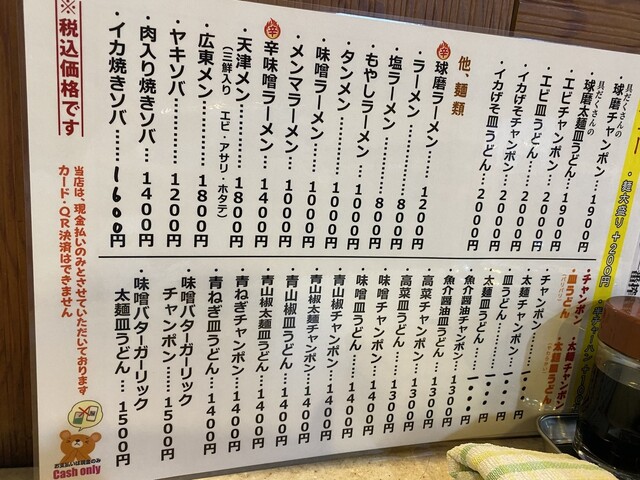 ・麺大盛り＋200円
具だくさんの
球磨チャンポン…1900円
具だくさんの
球磨太麺皿うどん…1900円
・エビチャンポン……2000円
・エビ皿うどん……2000円
・イカげそチャンポン…2000円
・イカげそ皿うどん……2000円
他、麺類
辛
・球磨ラーメン………1200円
・ラーメン………800円
・塩ラーメン………800円
・もやしラーメン……1000円
・タンメン………1000円
・味噌ラーメン………1000円
・メンマラーメン……1000円
辛
・辛味噌ラーメン……1400円
・天津メン………1800円
（三鮮入り エビ・アサリ・ホタテ）
・広東メン………1800円
・ヤキソバ………1200円
・肉入り焼きソバ…1400円
・イカ焼きソバ……1600円
※税込価格です
チャンポン・太麺チャンポン
皿うどん・太麺皿うどん
・チャンポン
・太麺チャンポン
・皿うどん
・太麺皿うどん
・魚介醤油チャンポン…1300円
・魚介醤油皿うどん…1300円
・高菜チャンポン……1300円
・高菜皿うどん……1300円
・味噌チャンポン……1400円
・味噌皿うどん……1400円
・青山椒チャンポン……1400円
・青山椒太麺チャンポン…1400円
・青山椒皿うどん……1400円
・青山椒太麺皿うどん…1400円
・青ねぎチャンポン……1400円
・青ねぎ皿うどん……1400円
・味噌バターガーリック
チャンポン……1500円
・味噌バターガーリック
太麺皿うどん…1500円
当店は、現金払いのみとさせていただいております
カード・QR決済はできません
お支払いは現金のみ
Cash only